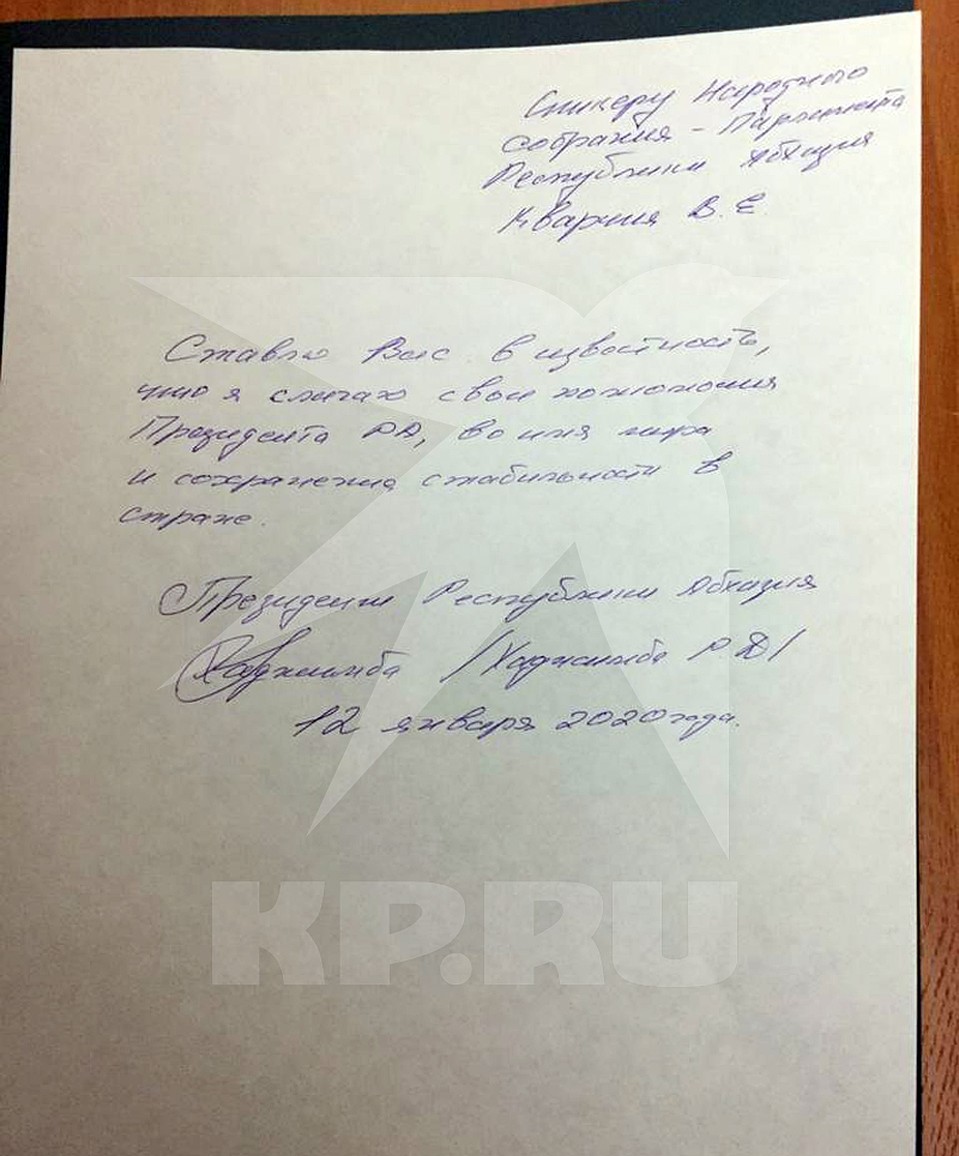 Спикеру Народного
собрания - Парламента
Республики Абхазия
Кварчия В. Е.
Ставлю Вас в известность,
что я слагаю свои полномочия
Президента РА, во имя мира
и сохранения стабильности в
стране.
Президент Республики Абхазия
Хаджимба /Хаджимба Р.Д/
12 января 2020 года.
KP.RU